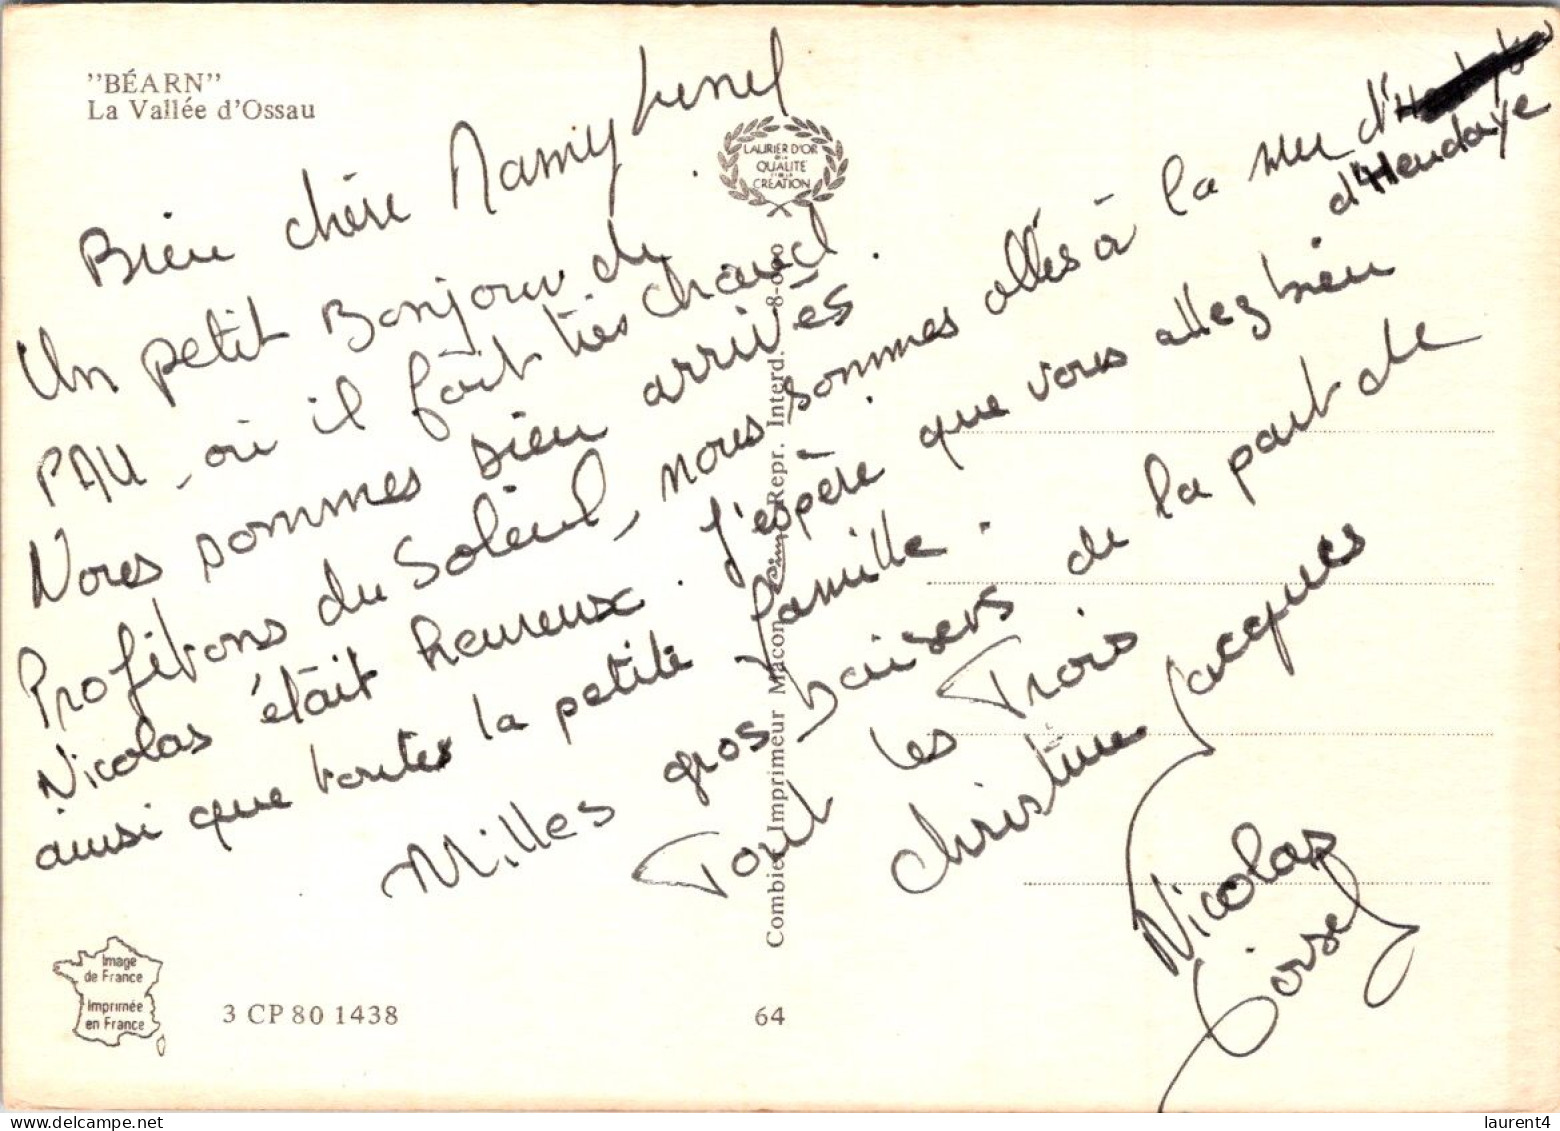 "BÉARN"
La Vallée d'Ossau
LAURIER D'OR
DE LA
QUALITÉ
ET DE LA
CRÉATION
Bien chère Mamy
Un petit Bonjour de
PAU, où il fait très chaud.
Nous sommes bien arrivés
Profitons du Soleil, nous sommes allés à la mer d'Hendaye
d'Hendaye
Nicolas était heureux. J'espère que vous allez bien
ainsi que toutes la petite famille.
Milles gros baisers de la part de
Tout les Trois
Christine Jacques
Nicolas
Combier Imprimeur Macon Cim Repr. Interd.
Image
de France
Imprimée
en France
3 CP 80 1438
64
laurent4